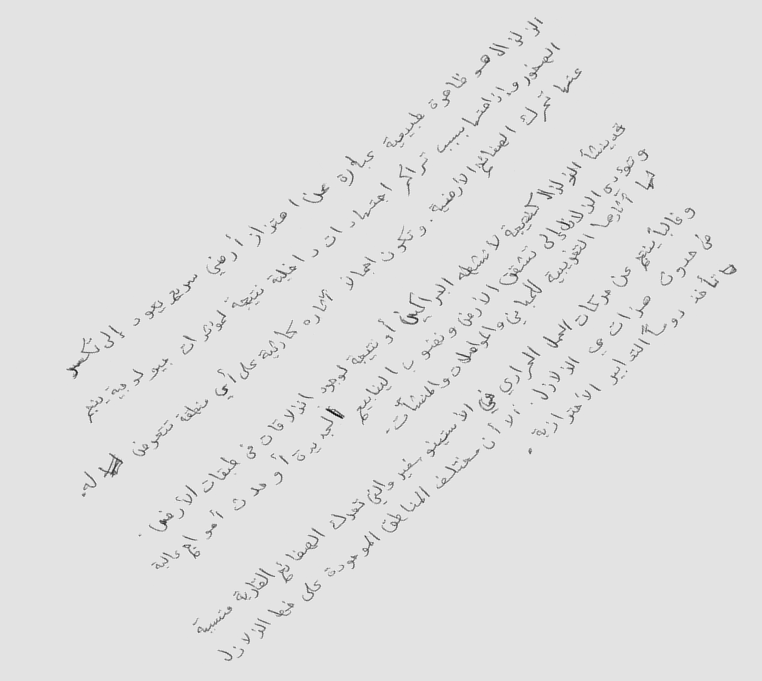 الزلزال هو ظاهرة طبيعية عبارة عن اهتزاز أرضي سريع يعود إلى تكسر
الصخور وإزاحتها بسبب تراكم اجتهادات داخلية نتيجة لمؤثرات جيولوجية ينجم
عنها تحرك الصفائح الأرضية. وتكون اجمالا آثاره كارثية على أي منطقة تتعرض له.
قد ينشأ الزلزال كنتيجة لأنشطة البراكين أو نتيجة لوجود انزلاقات في طبقات الأرض.
وتؤدي الزلازل إلى تشقق الأرض ونضوب الينابيع الجديدة أو حدث أمواج عالية
لها آثارها التخريبية للمباني والمواصلات والمنشآت.
وغالباً ينتج عن حركات الحمل الحراري في الأستينوسفير والتي تحرك الصفائح القارية متسببة
في حدوث هزات هي الزلازل. الا أن مختلف المناطق الموجودة على خط الزلازل
تأخذ دوماً التدابير الاحترازية.